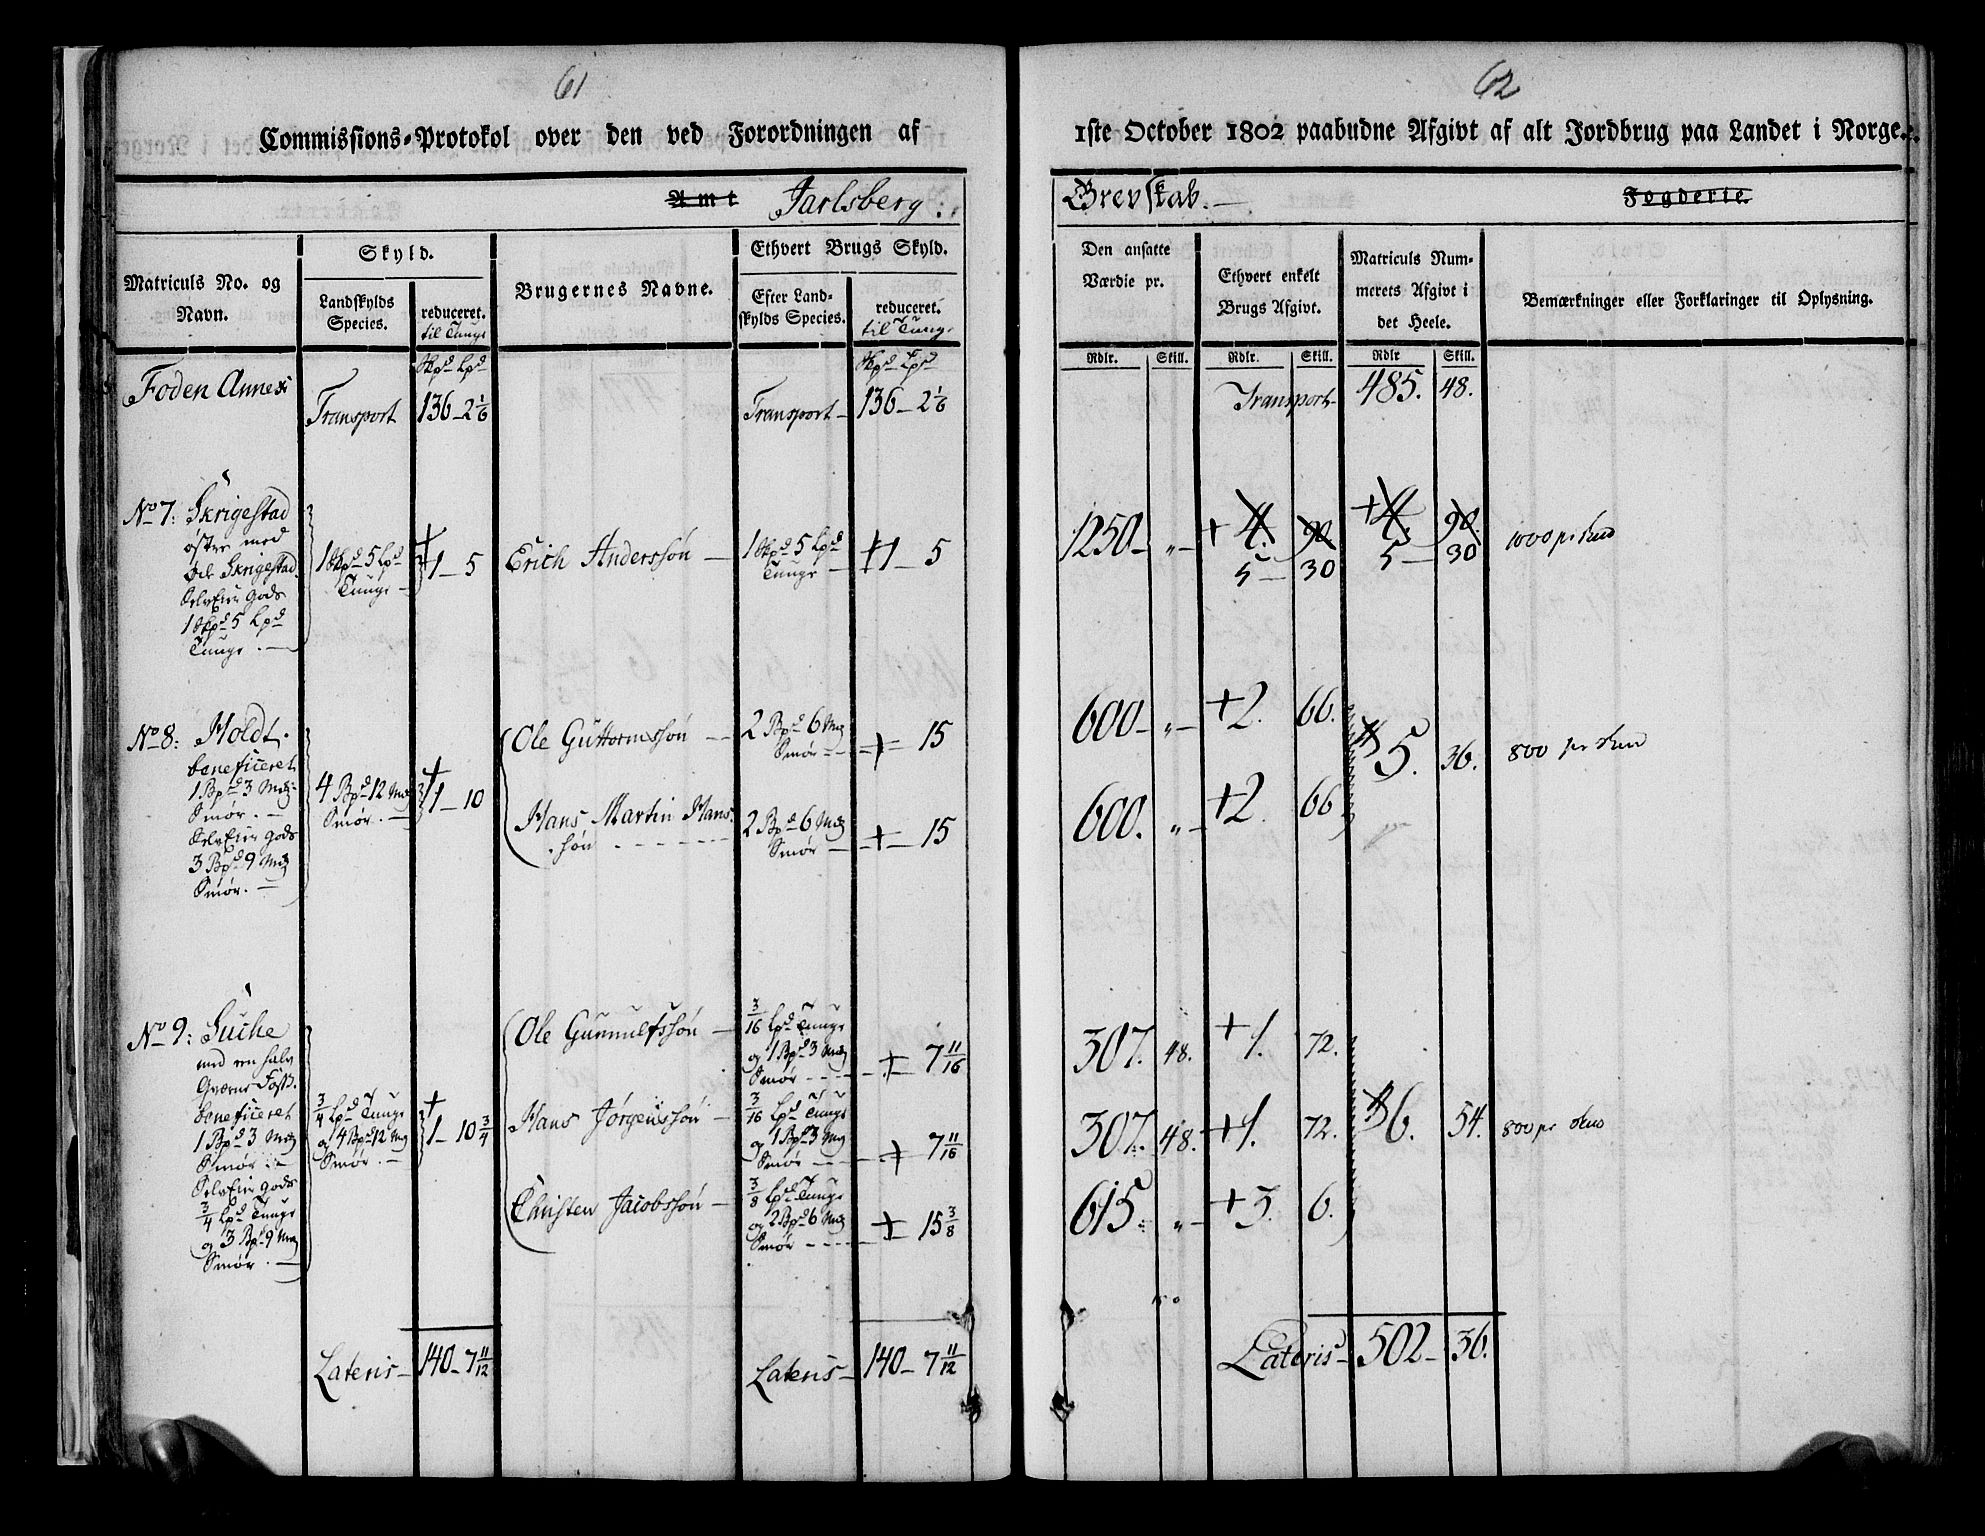 61
62
Commissions-Protokol over den ved Forordningen af
1ste October 1802 paabudne Afgivt af alt Jordbrug paa Landet i Norge.
Amt Jarlsberg
Grevskab. Fogderie.
Matriculs No. og
Navn.
Skyld.
Landskylds
Species.
reduceret.
til Tunge
Brugernes Navne.
Ethvert Brugs Skyld.
Efter Land-
skylds Species.
reduceret.
til Tunge
Den ansatte
Værdie pr.
Ethvert enkelt
Brugs Afgivt.
Matriculs Num-
merets Afgivt i
det Heele.
Bemærkninger eller Forklaringer til Oplysning.
Rdlr. Skill. Rdlr. Skill. Rdlr Skill.
Skpd Lpd
Skpd Lpd
Foden Annex
Transport 136 - 2 1/6
Transport - 136 - 2 1/6
Transport - 485. 48.
No 7: Skrigestad
østre med
Selveier Gods
1 Skpd 5 Lpd
Tunge . -
1 Skpd 5 Lpd
Tunge -
+ 1 - 5
Erich Anderssøn -
1 Skpd 5 Lpd
Tunge -
+ 1 - 5
1250 - „ - + 4. 90 + 4. 90
5 - 30 5 - 30
1000 pr Skd
No 8: Holdt.
beneficeret
1 Bpd 3 Mrk
Smør . -
Selveier Gods
3 Bpd 9 Mrk
Smør. -
4 Bpd 12 Mrk
Smør. -
+ 1 - 10
Ole Guttormssøn - -
2 Bpd 6 Mrk
Smør - -
+ - 15
600 - „ - + 2. 66.
Hans Martin Hans-
søn - - - -
2 Bpd 6 Mrk
Smør -
+ - 15
600. „ - + 2. 66
5. 36.
800 pr Skd
No 9: Suche
med en halv
Qværne Foss.
beneficeret
1 Bpd 3 Mrk
Smør . -
Selveier Gods
3/4 Lpd Tunge
og 3 Bpd 9 Mrk
Smør . -
3/4 Lpd Tunge
og 4 Bpd 12 Mrk
Smør . -
+ 1 - 10 3/4
Ole Gunnulfssøn -
3/16 Lpd Tunge
og 1 Bpd 3 Mrk
Smør - - -
+ 7 11/16
307. 48. + 1. 72.
Hans Jørgenssøn -
3/16 Lpd Tunge
og 1 Bpd 3 Mrk
Smør - - -
+ 7 11/16
307. 48. + 1. 72.
Christen Jacobssøn -
3/8 Lpd Tunge
og 2 Bpd 6 Mrk
Smør - - - -
+ 15 3/8
615. „ - + 3. 6.
6. 54.
800 pr Skd
Lateris - 140 - 7 11/12
Lateris - 140 - 7 11/12
Lateris - 502 - 36.